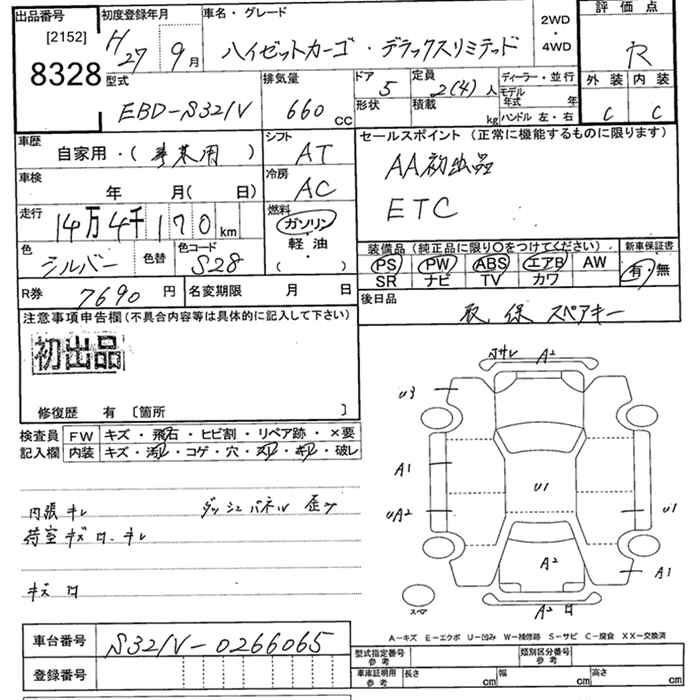 出品番号 初度登録年月 車名・グレード 2WD・4WD 評価点
[2152]
8328
H27 9月 ハイゼットカーゴ・デラックスリミテッド R
型式 排気量 ドア 定員 ディーラー・並行 外装 内装
EBD-S321V 660cc 5 2(4)人 モデル年式 年 C C
形状 積載 kg ハンドル 左・右
車歴 自家用・(事業用) シフト AT
セールスポイント(正常に機能するものに限ります)
AA初出品
ETC
車検 年 月(日) 冷房 AC
走行 14万4千170km 燃料 ガソリン 軽油 ( )
色 シルバー 色替 色コード S28
装備品(純正品に限り○をつけてください) 新車保証書
PS PW ABS エアB AW 有・無
SR ナビ TV カワ
R券 7690円 名変期限 月 日
後日品 取 保 スペアキー
注意事項申告欄(不具合内容等は具体的に記入して下さい)
初出品
修復歴 有 〔箇所 〕
検査員記入欄 FW キズ・飛石・ヒビ割・リペア跡・×要
内装 キズ・汚レ・コゲ・穴・スレ・キレ・破レ
内張キレ ダッシュパネル 歪ミ
荷室キズ ロ キレ
キズ ロ
サレ A2
U3
A1
U1
UA2 U1
A2
A1
スペア A2 ロ
A-キズ E-エクボ U-凹み W-補修跡 S-サビ C-腐食 XX-交換済
車台番号 S321V-0266065
登録番号
型式指定番号 参考 類別区分番号 参考
車庫証明用 参考 長さ cm 幅 cm 高さ cm